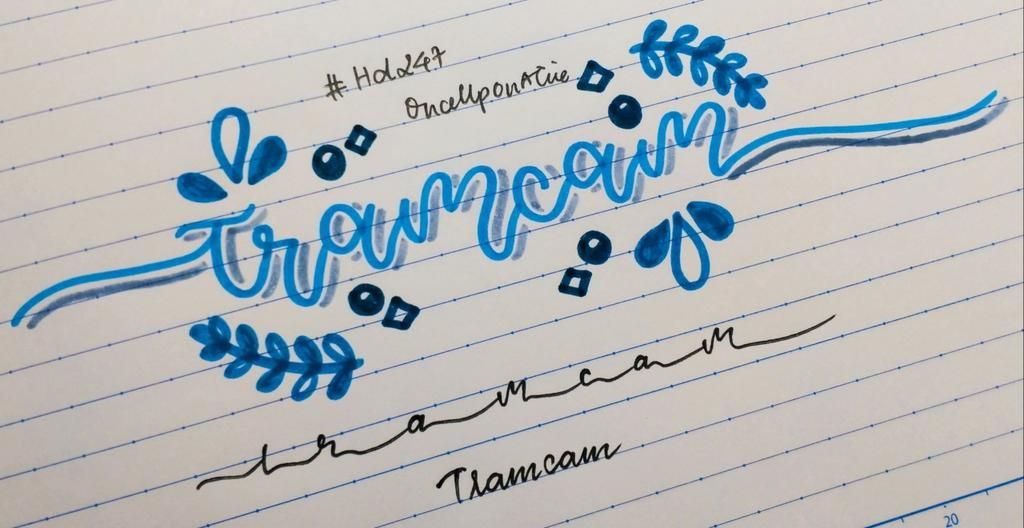 #Hd247
OnceUponATie
Tramcam
tramcam
Tramcam
20